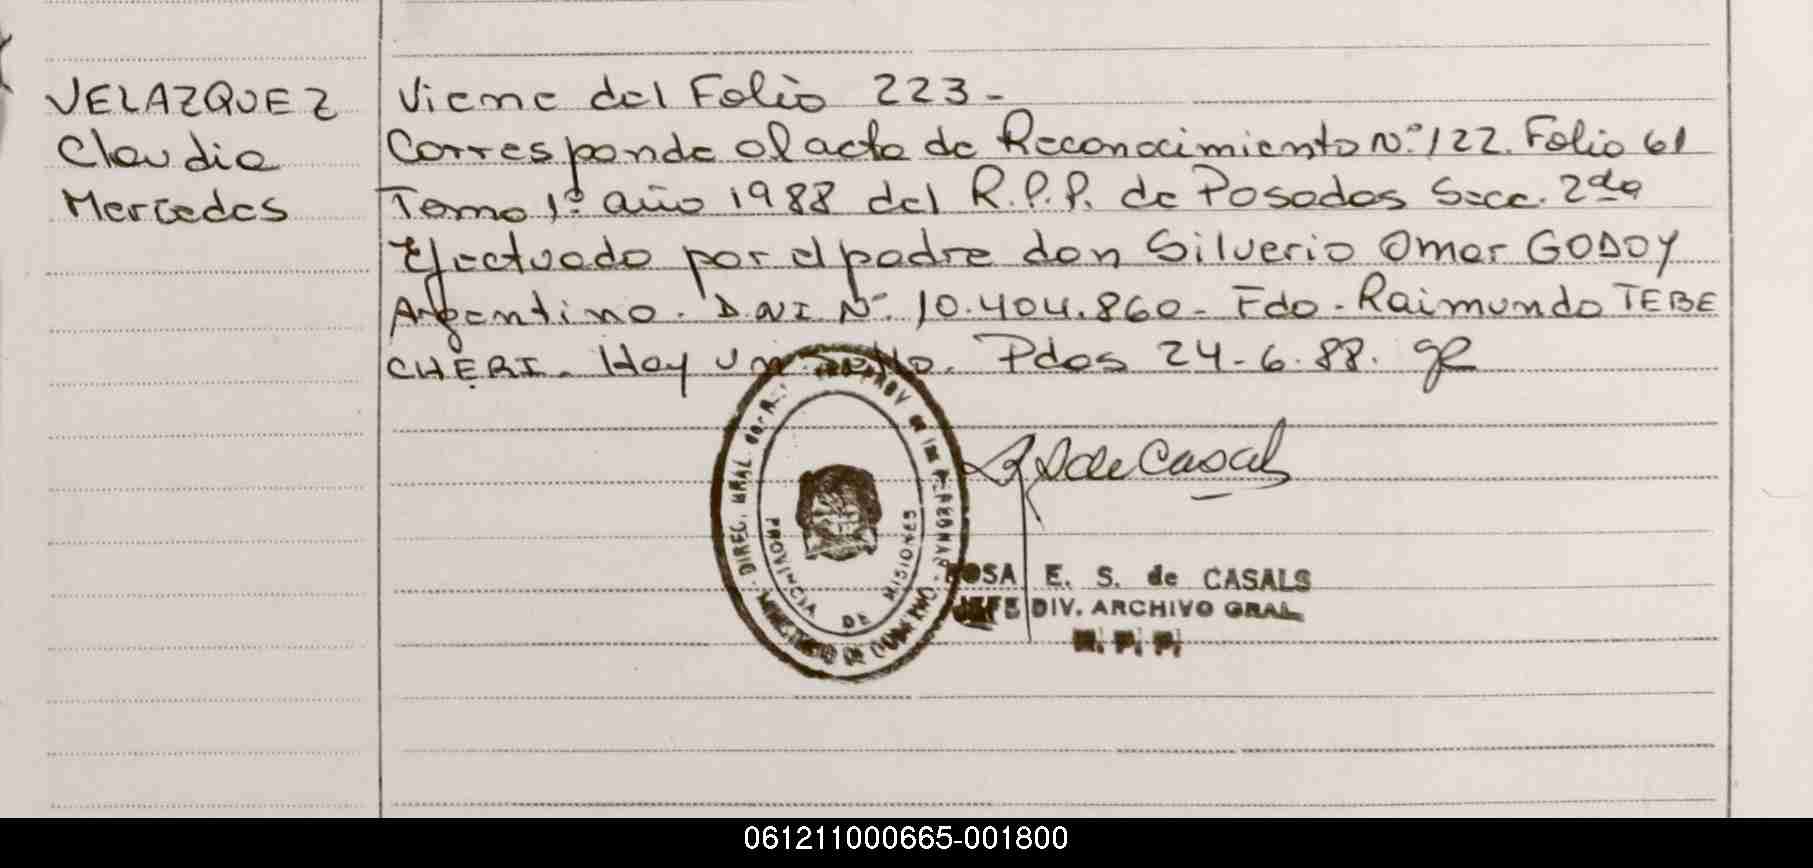 VELAZQUEZ
Claudia
Mercedes
Viene del Folio 223-
Corresponde al acta de Reconocimiento N:º 122. Folio 61
Tomo 1º año 1988 del R.P.P. de Posadas Secc. 2da
Efectuado por el padre don Silverio Omar GODOY
Argentino. D.N.I. Nº. 10.404.860- Fdo. Raimundo TEBE
CHERI. Hay un Sello. Pdas 24-6.88. 
DIREC. GRAL de las PERSONAS
PROVINCIA DE MISIONES
MINISTERIO DE GOBIERNO
R S de Casals
ROSA E. S. de CASALS
JEFE DIV. ARCHIVO GRAL
R. P. P.
061211000665-001800